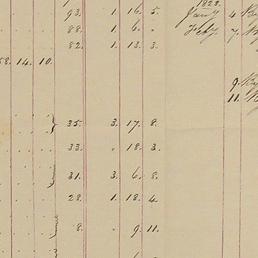 1822.
93. 1. 16. 5. Jany 4.
88. 1. 6. „ Feby 7.
82. 1. 13. 3.
58. 14. 10.
9.
11.
35. 3. 17. 8.
33. „ 18. 3.
31. 3. 6. 8.
28. 1. 18. 4.
8. „ 9. 11.